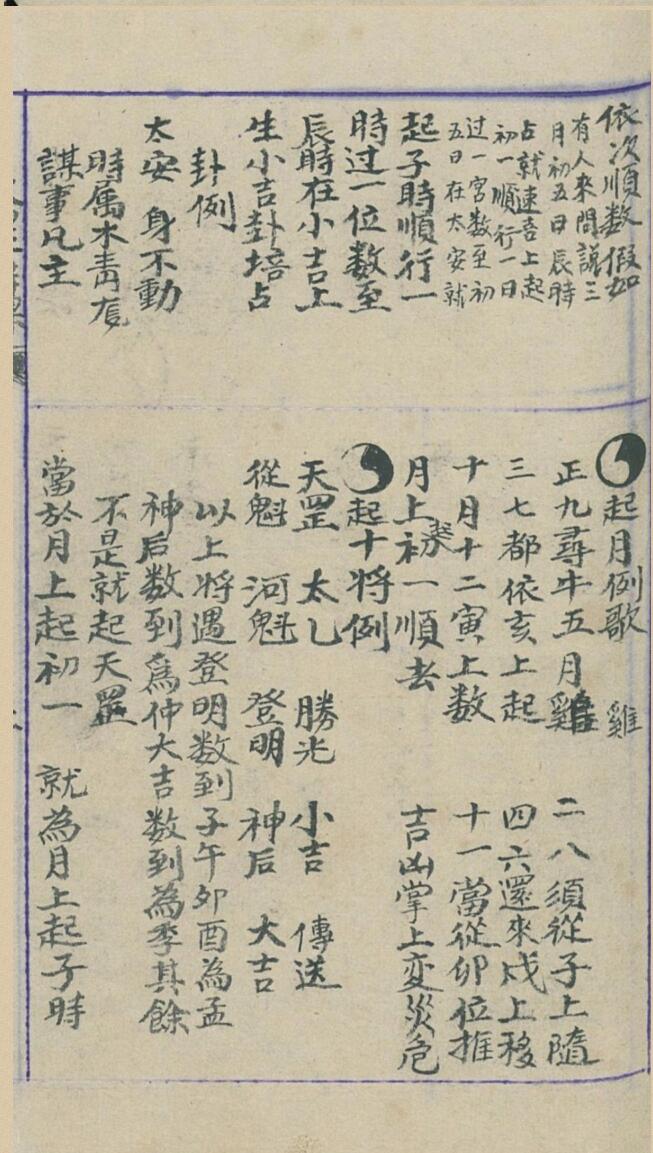 依次順数假如
有人來問說三
月初五日辰時
占就速喜上起
初一順行一日
过一宮数至初
五日在太安就
起子時順行一
時过一位数至
辰時在小吉上
生小吉卦培占
卦例
太安 身不動
時属木青
謀事凡主
起月例歌
正九尋牛五月雞 雞 二八須從子上隨
三七都依亥上起 四六還來戌上移
十月十二寅上数 十一當從卯位推
月上初一順去 吉凶掌上変災危
起十将例
天罡 太乙 勝光 小吉 傳送
從魁 河魁 登明 神后 大吉
以上将遇登明数到子午卯酉為孟
神后数到爲仲大吉数到為季其餘
不是就起天罡
當於月上起初一 就為月上起子時